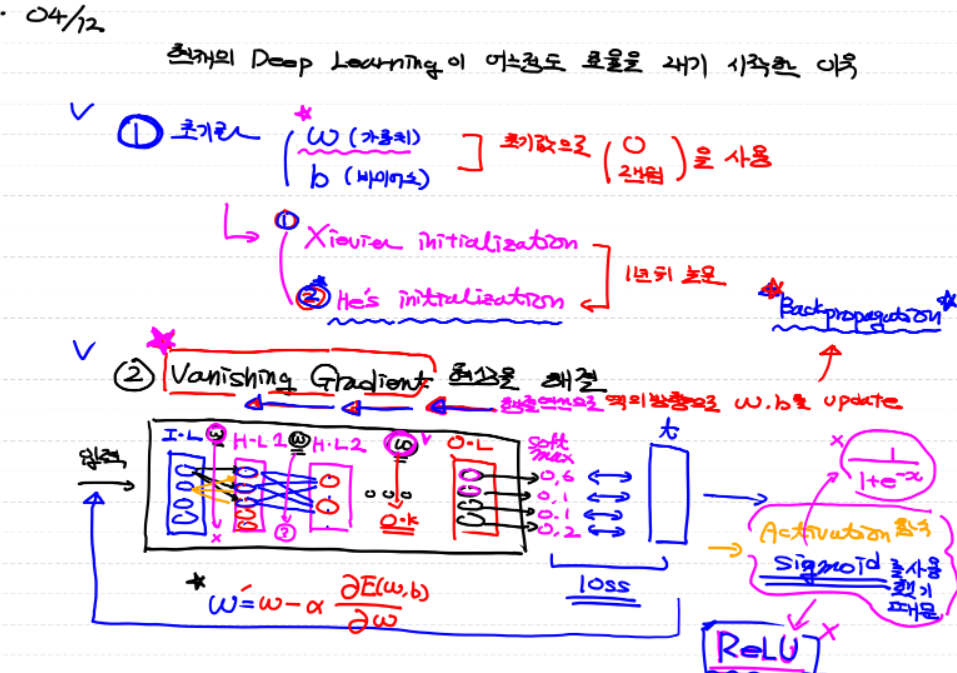 04/12
현재의 Deep Learning이 어느정도 효율을 내기 시작한 이유
V
① 초기화
W (가중치)
b (바이어스)
초기값으로 (0 랜덤)을 사용
① Xievier initialization
② He's initialization
1년뒤 논문
Backpropagation
V
② Vanishing Gradient 현상을 해결
행렬연산으로 역의 방향으로 w.b를 update
입력
I.L
H.L 1
H.L 2
O.L
O.K
Soft max
0.6
0.1
0.1
0.2
t
loss
w' = w - α ∂E(w,b)/∂w
1/1+e^-x
Activation 함수
sigmoid를 사용
했기
때문
ReLU